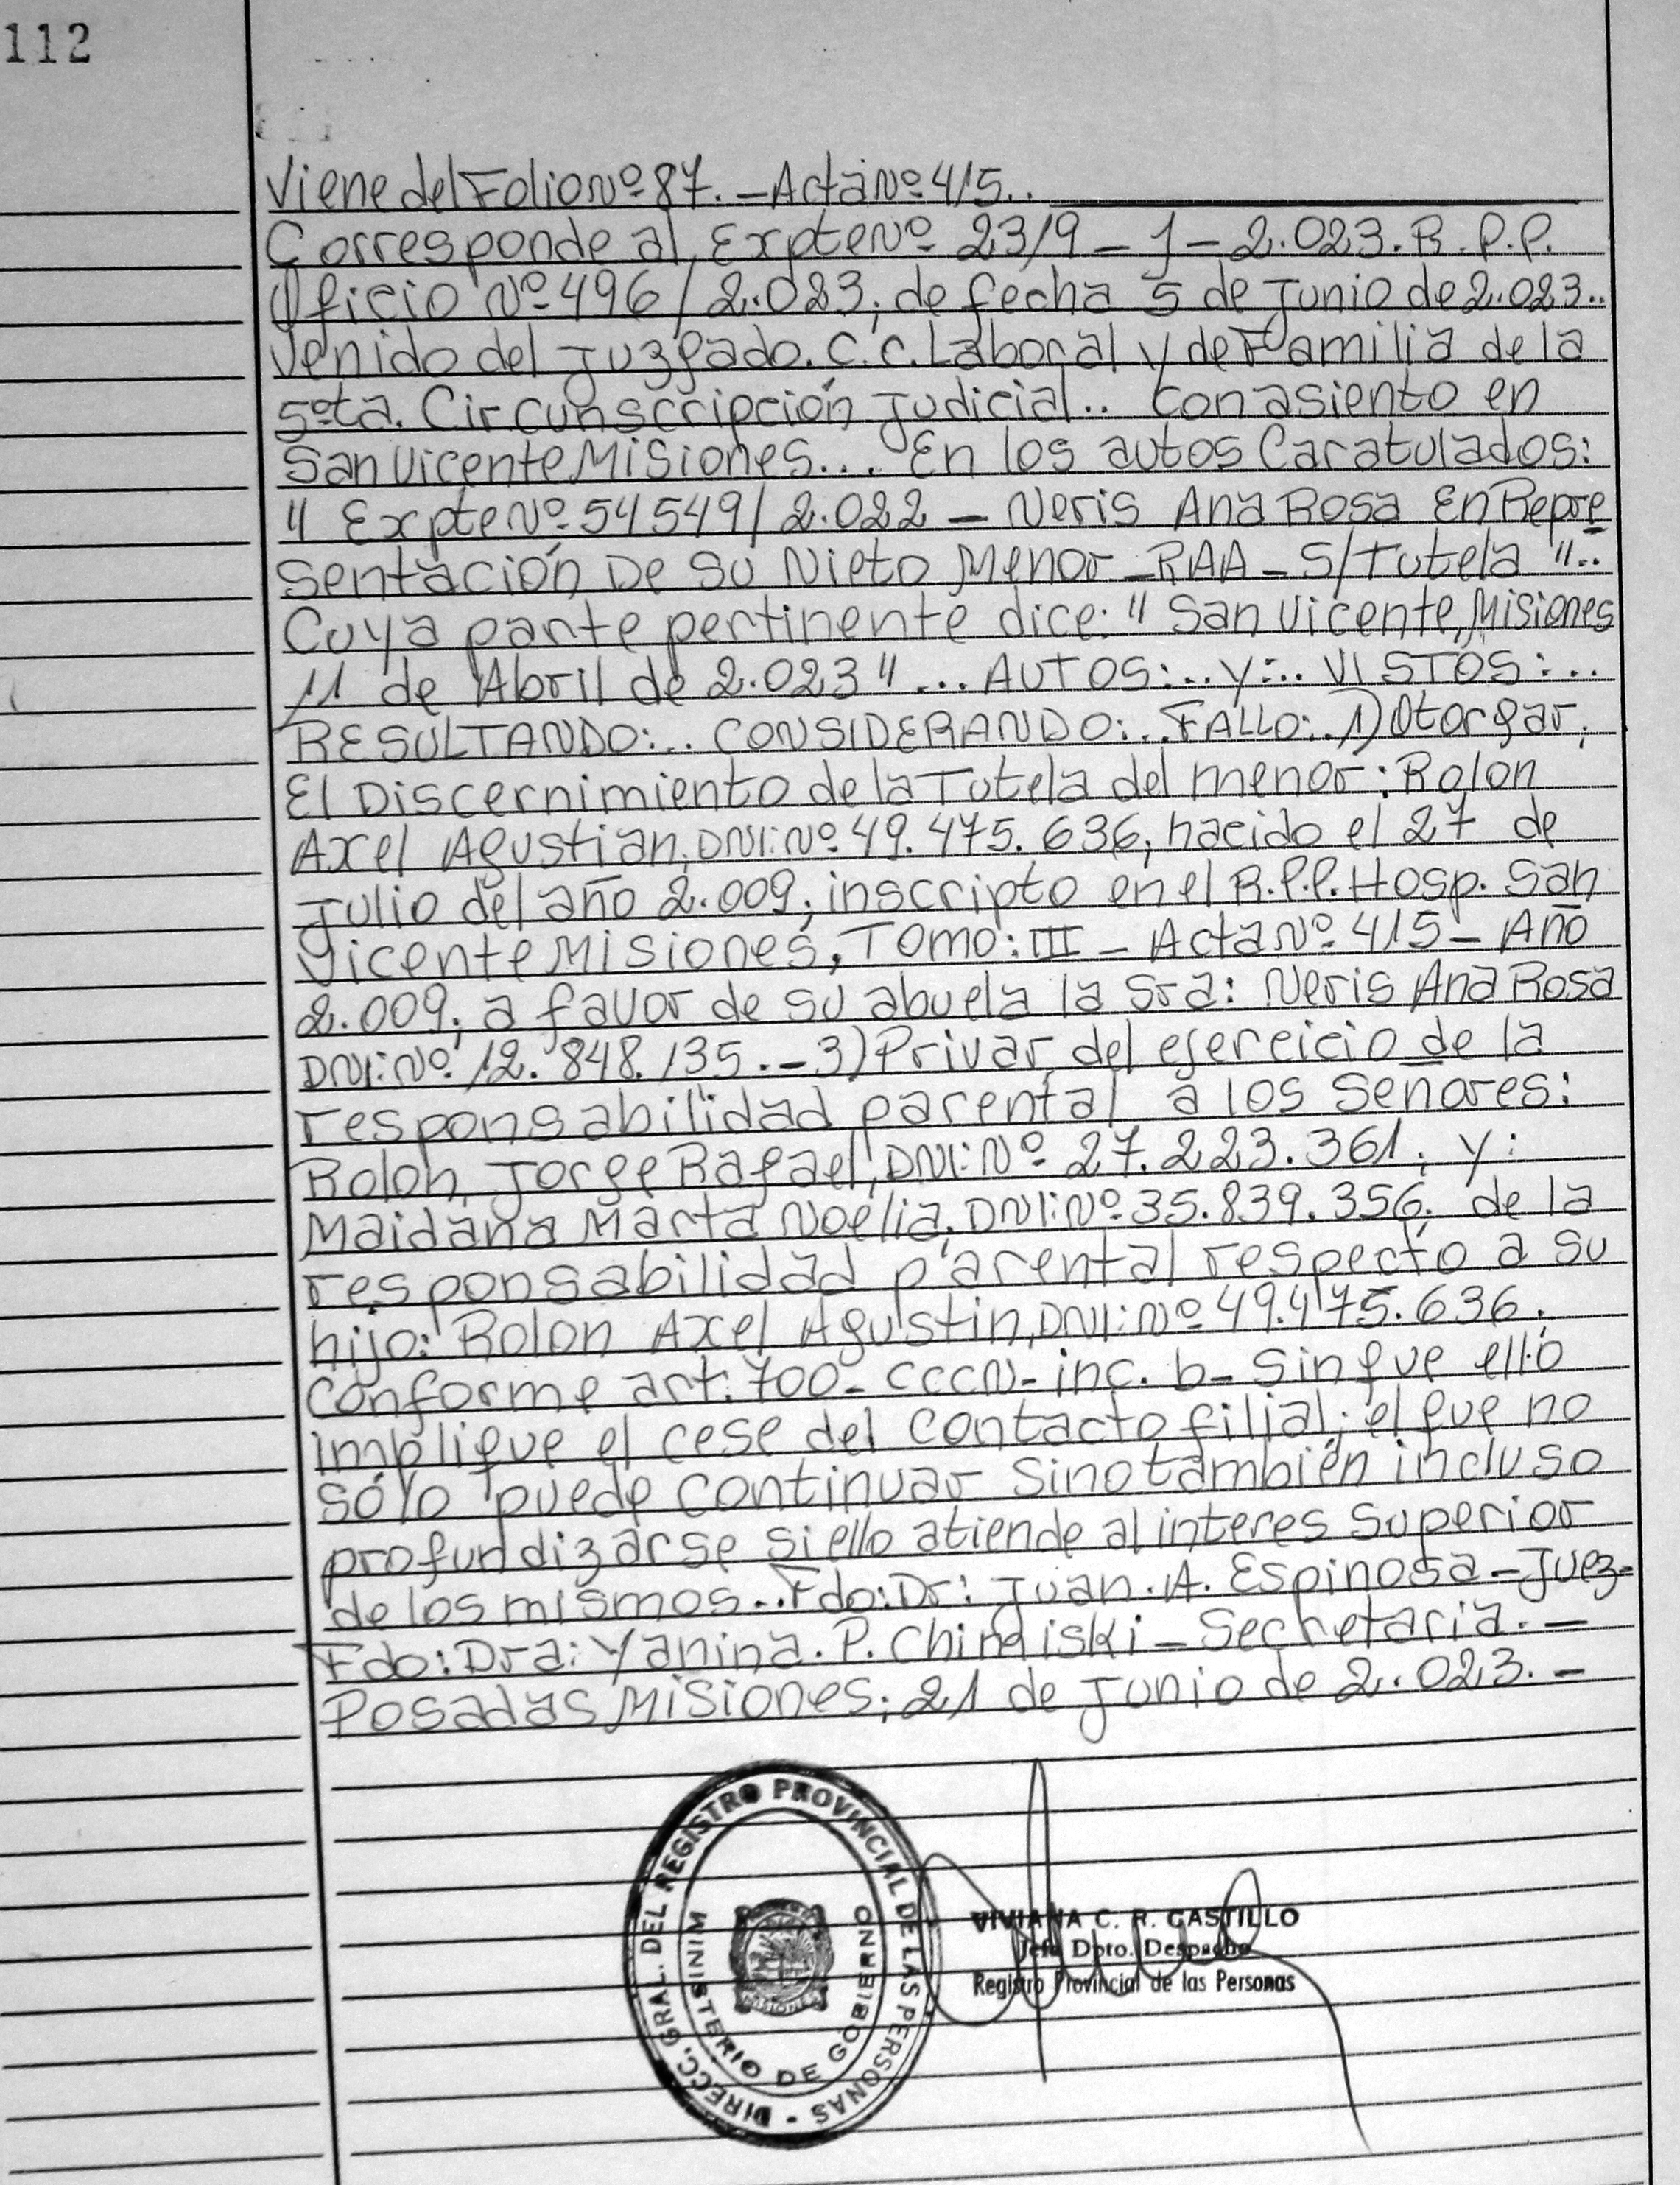 112
Viene del Folio Nº 87. - Acta Nº 415..
Corresponde al Expte Nº 2319 - J - 2.023. R.P.P.
Oficio Nº 496/2.023; de fecha 5 de Junio de 2.023..
Venido del Juzgado. C.C. Laboral y de Familia de la
5ºta. Circunscripción Judicial.. Con asiento en
San Vicente Misiones... En los autos Caratulados:
" Expte Nº 54549/2.022 - Neris Ana Rosa En Repre
sentación De Su Nieto Menor - RAA - S/Tutela "..
Cuya parte pertinente dice: " San Vicente, Misiones
11 de Abril de 2.023 "... AUTOS:.. y:.. VISTOS:...
RESULTANDO:.. CONSIDERANDO:.. FALLO:. 1) Otorgar;
El Discernimiento de la Tutela del menor: Rolon
Axel Agustian, DNI: Nº 49.475.636, nacido el 27 de
Julio del año 2.009; inscripto en el R.P.P. Hosp. San
Vicente Misiones, Tomo: III - Acta Nº 415 - Año
2.009; a favor de su abuela la Sra: Neris Ana Rosa
DNI: Nº 12.848.135. - 3) Privar del ejercicio de la
responsabilidad parental a los Señores:
Rolon, Jorge Rafael, DNI: Nº 27.223.361; y:
Maidana Marta Noelia, DNI: Nº 35.839.356; de la
responsabilidad parental respecto a su
hijo: Rolon Axel Agustin, DNI: Nº 49.475.636;
Conforme art. 700 - CCCN - inc. b - Sin que ello
implique el cese del contacto filial; el que no
sólo puede continuar Sino también incluso
profundizarse si ello atiende al interes Superior
de los mismos... Fdo: Dr: Juan. A. Espinosa - Juez -
Fdo: Dra: Yanina. P. Chimiski - Secretaria. -
Posadas Misiones; 21 de Junio de 2.023. -
DIRECC. GRAL. DEL REGISTRO PROVINCIAL DE LAS PERSONAS -
MINISTERIO DE GOBIERNO
MISIONES
VIVIANA C. R. CASTILLO
Jefa Dpto. Despacho
Registro Provincial de las Personas